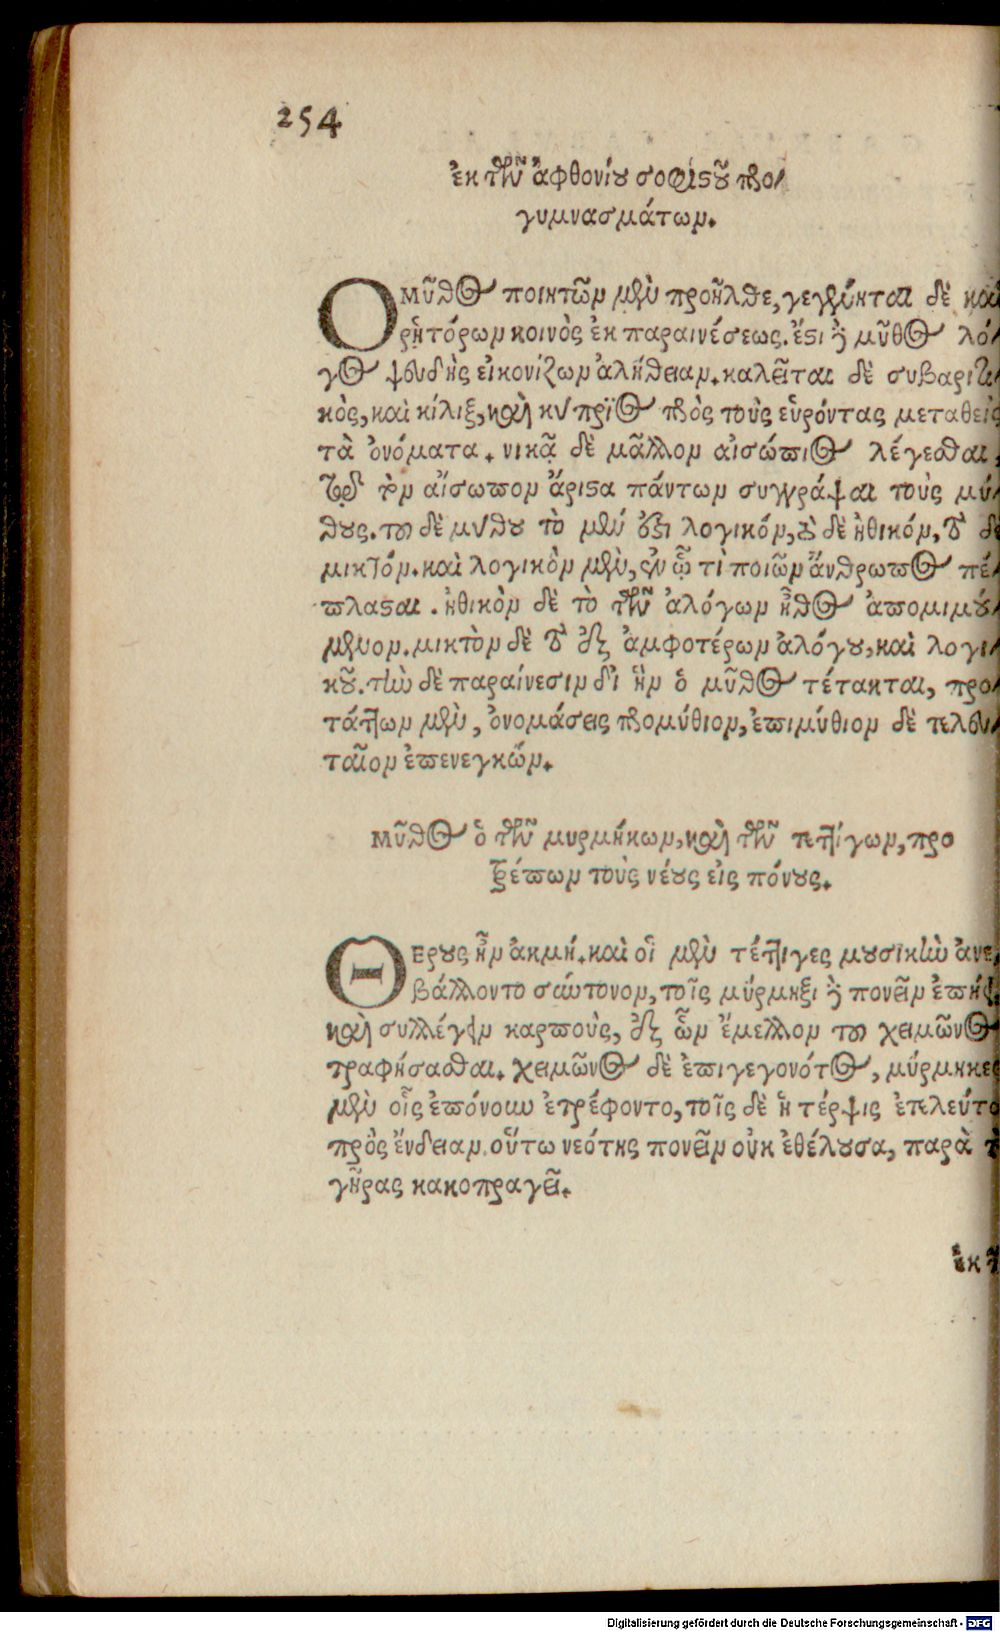 254
ἐκ τῶν ἀφθονίου σοφιστοῦ προ
γυμνασμάτων.
Ο μῦθος ποιητῶν μὲν προῆλθε, γεγένηται δὲ καὶ
ῥητόρων κοινὸς ἐκ παραινέσεως. ἔστι δὲ μῦθος λό
γος ψευδὴς εἰκονίζων ἀλήθειαν. καλεῖται δὲ συβαριτι
κὸς, καὶ κίλιξ, καὶ κύπριος πρὸς τοὺς εὑρόντας μεταθεὶς
τὰ ὀνόματα. νικᾷ δὲ μᾶλλον αἰσώπιος λέγεσθαι,
τῷ τὸν αἴσωπον ἄριστα πάντων συγγράψαι τοὺς μύ
θους. τοῦ δὲ μύθου τὸ μέν ἐστι λογικόν, τὸ δὲ ἠθικόν, τὸ δὲ
μικτόν. καὶ λογικὸν μὲν, ἐν ᾧ τὶ ποιῶν ἄνθρωπος πέ
πλασται. ἠθικὸν δὲ τὸ τῶν ἀλόγων ἦθος ἀπομιμού
μενον. μικτὸν δὲ τὸ ἐξ ἀμφοτέρων ἀλόγου, καὶ λογι
κοῦ. τὴν δὲ παραίνεσιν δι ἣν ὁ μῦθος τέτακται, προ
τάττων μὲν, ὀνομάσεις προμύθιον, ἐπιμύθιον δὲ τελευ
ταῖον ἐπενεγκών.
Μῦθος ὁ τῶν μυρμήκων, καὶ τῶν τεττίγων, προ
τρέπων τοὺς νέους εἰς πόνους.
Θέρους ἦν ἀκμή. καὶ οἱ μὲν τέττιγες μουσικὴν ἀνε
βάλλοντο σύντονον, τοῖς μύρμηξι δὲ πονεῖν ἐπῄει
καὶ συλλέγειν καρποὺς, ἐξ ὧν ἔμελλον τοῦ χειμῶνος
τραφήσασθαι. χειμῶνος δὲ ἐπιγεγονότος, μύρμηκες
μὲν οἷς ἐπόνουν ἐτρέφοντο, τοῖς δὲ ἡ τέρψις ἐτελεύτα
πρὸς ἔνδειαν. οὕτω νεότης πονεῖν οὐκ ἐθέλουσα, παρὰ τὸ
γῆρας κακοπραγεῖ.
ἐκ
Digitalisierung gefördert durch die Deutsche Forschungsgemeinschaft - DFG